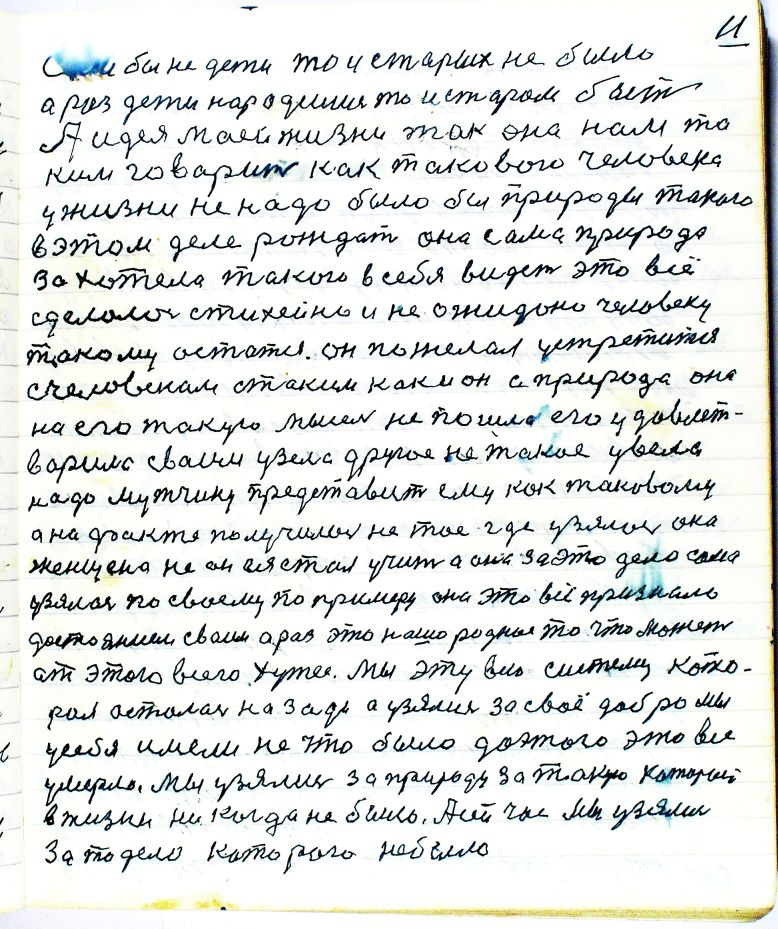 11
бы не дети то и старых не было
а раз дети народились то и старом быть
А идея маей жизни так она нам та
ким говарит как такового человека
у жизни не надо было бы природы такого
в этом деле рождат она сама природа
захотела такого в себя видет это всё
сделолос стихейно и не ожидоно человеку
такому остатся. он пожелал устретится
с человекам с таким как и он а природа она
на его такую мысел не пошла его удовлет-
ворила сваим узела другое не такое увела
надо мужчину представит ему как таковому
а на факте получилос не тое где узялос она
женщена не он ея стал учит а она за это дело сама
узялас по своему по примеру она это всё признало
достоянием сваим а раз это нашо родное то что может
ат этого всего хужее. Мы эту всю систему кото-
рая осталас на зади а узялис за своё добро мы
у себя имели не что было доэтого это все
умерло. Мы узялис за природу за такую которой
в жизни никогда не было. А сей час мы узялис
за то дело которого небыло